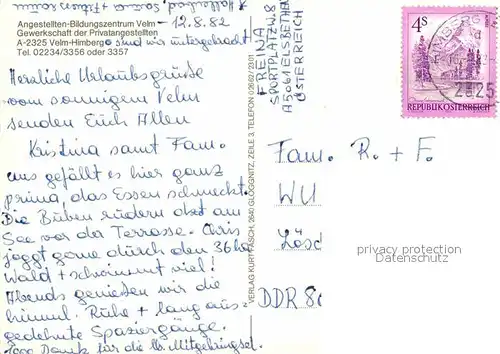 Angestellten-Bildungszentrum Velm - 12.8.82
Gewerkschaft der Privatangestellten
A-2325 Velm-Himberg o sind wir untergebracht
Tel. 02234/3356 oder 3357
Herzliche Urlaubsgrüsse
vom sonnigem Velm
senden Euch Allen
Kristina samt Fam.
uns gefällt es hier ganz
prima, das Essen schmeckt.
Die Buben rudern oft am
See vor der Terrasse. Chris
joggt gerne durch den 36 ha
Wald + schwimmt viel!
Abends geniesen wir die
himml. Ruhe + lang aus-
gedehnte Spaziergänge.
1000 Dank für die lb. Mitbringsel.
VERLAG KURT FASCH, 2640 GLOGGNITZ, ZEILE 3, TELEFON 02662/2301
FREINA
SPORTPLATZW. 8
A 5061 ELSBETHEN
ÖSTERREICH
4S
REPUBLIK ÖSTERREICH
HIMBERG
2325
Fam. R. + F.
WU
Lösd
DDR 80
privacy protection
Datenschutz